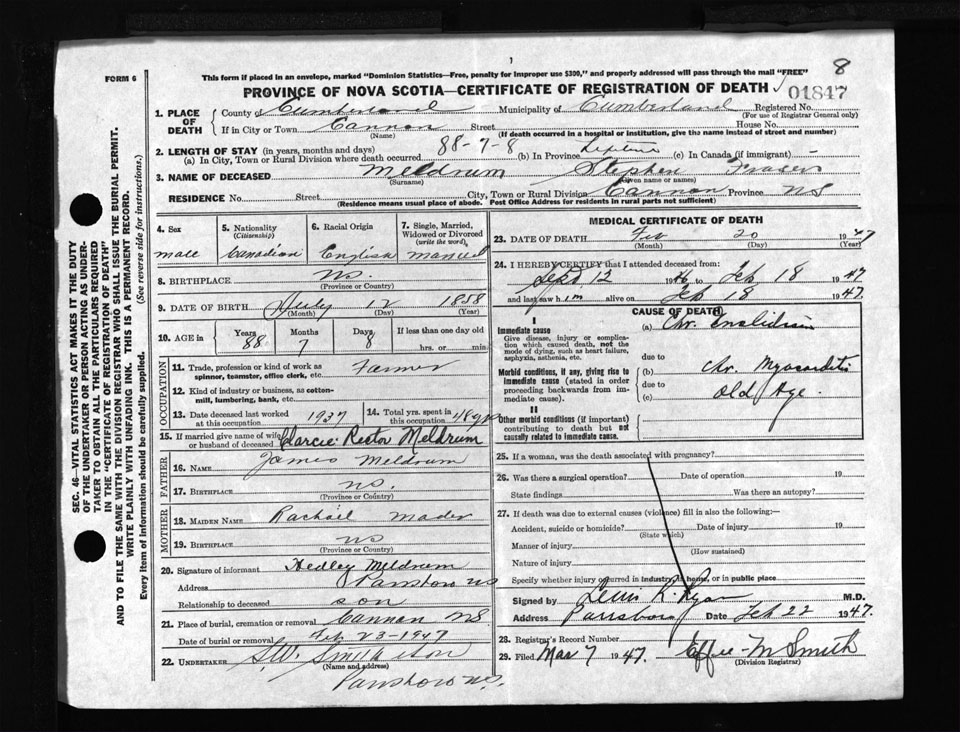 8
FORM 6
This form if placed in an envelope, marked "Dominion Statistics—Free, penalty for improper use $300," and properly addressed will pass through the mail "FREE"
PROVINCE OF NOVA SCOTIA—CERTIFICATE OF REGISTRATION OF DEATH 01847
1. PLACE OF DEATH County of Cumberland Municipality of Cumberland Registered No.
(For use of Registrar General only)
If in City or Town Cannon Street House No.
(Name) (If death occurred in a hospital or institution, give the name instead of street and number)
2. LENGTH OF STAY (in years, months and days)
(a) In City, Town or Rural Division where death occurred 88-7-8 (b) In Province Lifetime (c) In Canada (if immigrant) —
3. NAME OF DECEASED Meldrum Stephen Fraser
(Surname) (Given name or names)
RESIDENCE No. Street City, Town or Rural Division Cannon Province NS
(Residence means usual place of abode. Post Office Address for residents in rural parts not sufficient)
4. Sex 5. Nationality (Citizenship) 6. Racial Origin 7. Single, Married, Widowed or Divorced (write the word)
male Canadian English married
8. BIRTHPLACE NS.
(Province or Country)
9. DATE OF BIRTH July 12 1858
(Month) (Day) (Year)
10. AGE in Years Months Days If less than one day old
88 7 8 hrs. or min.
OCCUPATION
11. Trade, profession or kind of work as spinner, teamster, office clerk, etc. Farmer
12. Kind of industry or business, as cotton-mill, lumbering, bank, etc.
13. Date deceased last worked at this occupation 1937 14. Total yrs. spent in this occupation 48 yrs
15. If married give name of wife or husband of deceased Rector Meldrum
FATHER
16. NAME James Meldrum
17. BIRTHPLACE NS.
(Province or Country)
MOTHER
18. MAIDEN NAME Rachael Mader
19. BIRTHPLACE NS
(Province or Country)
20. Signature of informant Hedley Meldrum
Address Parrsboro NS
Relationship to deceased son
21. Place of burial, cremation or removal Cannon NS
Date of burial or removal Feb. 23-1947
22. UNDERTAKER Smith & Son
(Name and address)
Parrsboro NS.
MEDICAL CERTIFICATE OF DEATH
23. DATE OF DEATH Feb 20 1947
(Month) (Day) (Year)
24. I HEREBY CERTIFY that I attended deceased from:
Sept 12 1946 to Feb 18 1947
and last saw him alive on Feb 18 1947.
CAUSE OF DEATH
I
Immediate cause (a) Chr.
Give disease, injury or complication which caused death, not the mode of dying, such as heart failure, asphyxia, asthenia, etc.
due to
(b) Chr. Myocarditis
Morbid conditions, if any, giving rise to immediate cause (stated in order proceeding backwards from immediate cause).
due to
(c) Old Age.
II
Other morbid conditions (if important) contributing to death but not causally related to immediate cause.
25. If a woman, was the death associated with pregnancy?
26. Was there a surgical operation? Date of operation 19
State findings Was there an autopsy?
27. If death was due to external causes (violence) fill in also the following:—
Accident, suicide or homicide? Date of injury 19
(State which)
Manner of injury
(How sustained)
Nature of injury
Specify whether injury occurred in industry, in home, or in public place
Signed by R. Ryan M.D.
Address Parrsboro Date Feb 22 1947.
28. Registrar's Record Number
29. Filed Mar 7 1947. Effie M Smith
(Division Registrar)
SEC. 46—VITAL STATISTICS ACT MAKES IT THE DUTY OF THE UNDERTAKER OR PERSON ACTING AS UNDERTAKER TO OBTAIN ALL THE PARTICULARS REQUIRED IN THE "CERTIFICATE OF REGISTRATION OF DEATH" AND TO FILE THE SAME WITH THE DIVISION REGISTRAR WHO SHALL ISSUE THE BURIAL PERMIT.
WRITE PLAINLY WITH UNFADING INK. THIS IS A PERMANENT RECORD.
Every item of information should be carefully supplied. (See reverse side for instructions.)